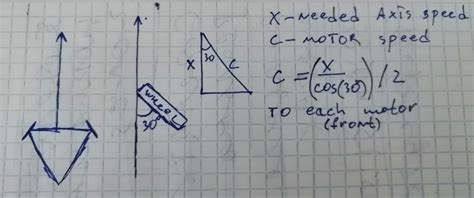 X - needed Axis speed
C - MOTOR speed
WHEEL
30°
X
30
C
C = (X / cos(30°)) / 2
TO each motor
(front)